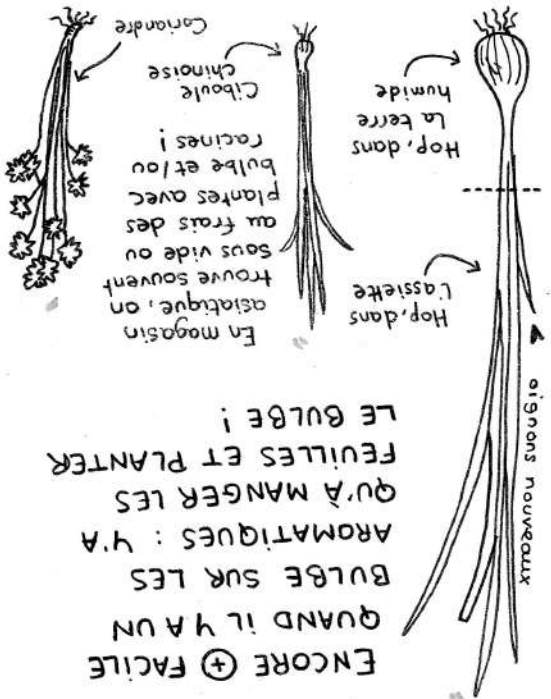 ENCORE ⊕ FACILE
QUAND IL Y A UN
BULBE SUR LES
AROMATIQUES : Y'A
QU'À MANGER LES
FEUILLES ET PLANTER
LE BULBE !
oignons nouveaux
Hop, dans
l'assiette
Hop, dans
la terre
humide
En magasin
asiatique, on
trouve souvent
sous vide ou
au frais des
plantes avec
bulbe et/ou
racines !
Ciboule
chinoise
Coriandre